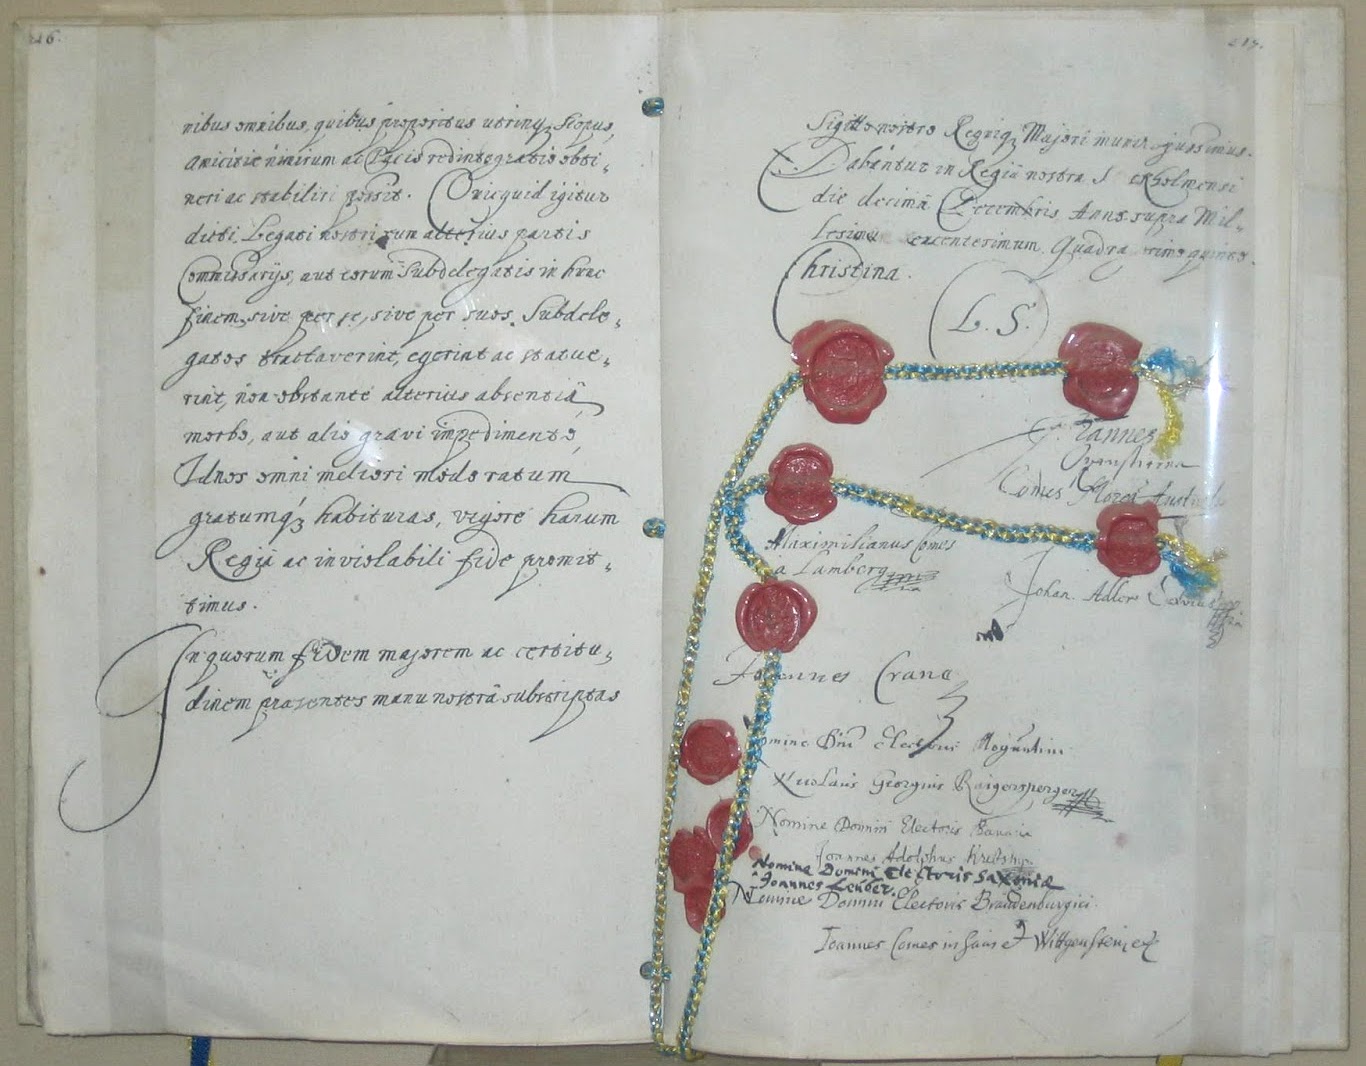 216.
nibus omnibus, quibus propositus utrinq; Scopus,
Amicitiæ nimirum ac Pacis redintegratio obti-
neri ac stabiliri possit. Quicquid igitur
dicti Legati nostri cum alterius partis
Commissarijs, aut eorum Subdelegatis in hunc
finem, sive per se, sive per suos Subdele-
gatos tractaverint, egerint ac statue-
rint, non obstante alterius absentiâ,
morbo, aut alio gravi impedimento,
Id nos omni meliori modo ratum
gratumq; habituras, vigore harum
Regiâ ac inviolabili fide promit-
timus.
In quorum fidem majorem ac certitu-
dinem præsentes manu nostrâ subscriptas
217.
Sigillo nostro Regniq; Majori munire jussimus.
Dabantur in Regiâ nostra Holmensi
die decimâ Decembris, Anno supra Mil-
lesimum quinto.
Christina.
L. S.
Johannes
Oxenstierna
Comes
Maximilianus Comes
à Lamberg
Johan. Adler Salvius
Joannes Crane
Nomine Dni Electoris Moguntini
Nicolaus Georgius Raigersperger
Nomine Domini Electoris Bavariæ
Joannes Adolphus Krebs
Nomine Domini Electoris Saxoniæ
Joannes Leuber.
Nomine Domini Electoris Brandenburgici.
Joannes Comes in Sain et Wittgenstein